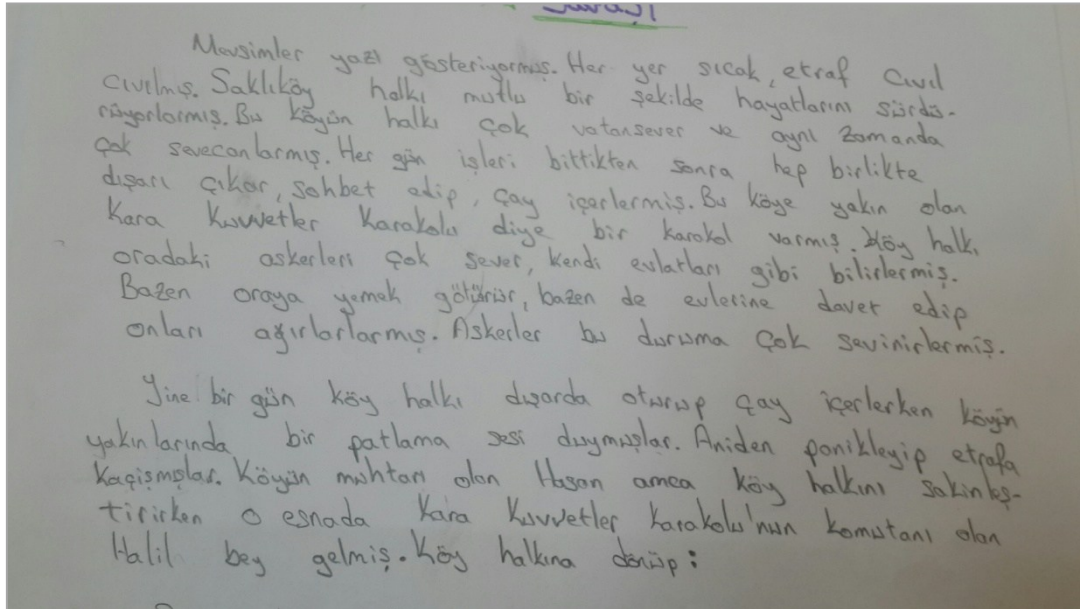 Mevsimler yazı gösteriyormuş. Her yer sıcak, etraf cıvıl
cıvılmış. Saklıköy halkı mutlu bir şekilde hayatlarını sürdü-
rüyorlarmış. Bu köyün halkı çok vatansever ve aynı zamanda
çok sevecanlarmış. Her gün işleri bittikten sonra hep birlikte
dışarı çıkar, sohbet edip, çay içerlermiş. Bu köye yakın olan
Kara Kuvvetler Karakolu diye bir karakol varmış. Köy halkı
oradaki askerleri çok sever, kendi evlatları gibi bilirlermiş.
Bazen oraya yemek götürür, bazen de evlerine davet edip
onları ağırlarlarmış. Askerler bu duruma çok sevinirlermiş.
Yine bir gün köy halkı dışarda oturup çay içerlerken köyün
yakınlarında bir patlama sesi duymuşlar. Aniden panikleyip etrafa
kaçışmışlar. Köyün muhtarı olan Hasan amca köy halkını sakinleş-
tirirken o esnada Kara Kuvvetler Karakolu'nun komutanı olan
Halil bey gelmiş. Köy halkına dönüp: